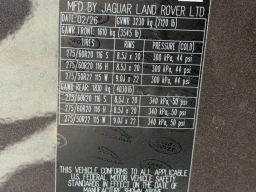 MFD.BY JAGUAR LAND ROVER LTD
DATE: 02/26 GVWR 3230 kg (7120 lb)
GAWR FRONT: 1610 kg (3545 lb)
TIRES RIMS PRESSURE (COLD)
275/60R20 116 S 8.5J x 20 300 kPa, 44 psi
275/60R20 115 H 8.5J x 20 300 kPa, 44 psi
275/50R22 115 W 9.0J x 22 300 kPa, 44 psi
GAWR REAR: 1830 kg (4030lb)
275/60R20 116 S 8.5J x 20 340 kPa, 50 psi
275/60R20 115 H 8.5J x 20 340 kPa, 50 psi
275/50R22 115 W 9.0J x 22 340 kPa, 50 psi
THIS VEHICLE CONFORMS TO ALL APPLICABLE
U.S. FEDERAL MOTOR VEHICLE SAFETY
STANDARDS IN EFFECT ON THE DATE OF
MANUFACTURE SHOWN ABOVE